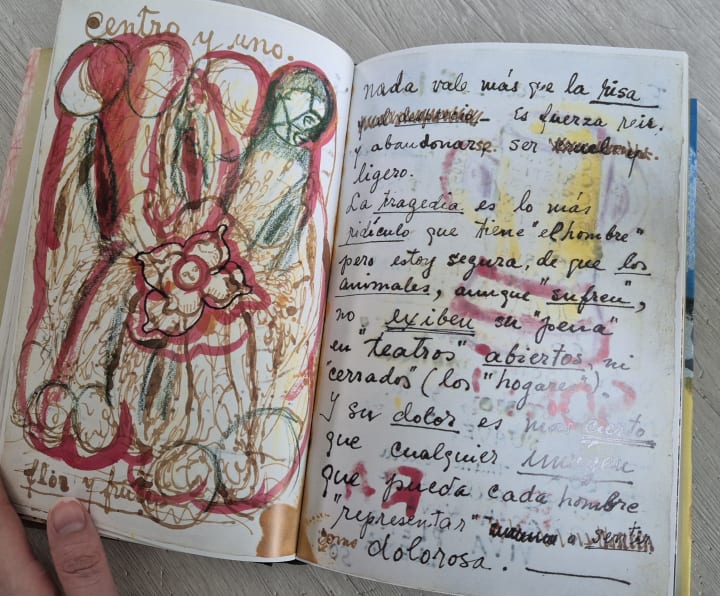 Centro y uno.
flor y fruto
nada vale más que la risa
Es fuerza reir.
y abandonarse. ser
ligero.
La tragedia es lo más
ridículo que tiene "el hombre"
pero estoy segura, de que los
animales, aunque "sufren",
no exiben su "pena"
en "teatros" abiertos, ni
"cerrados" (los "hogares").
Y su dolor es más cierto
que cualquier imagen
que pueda cada hombre
"representar" o sentir
como dolorosa.